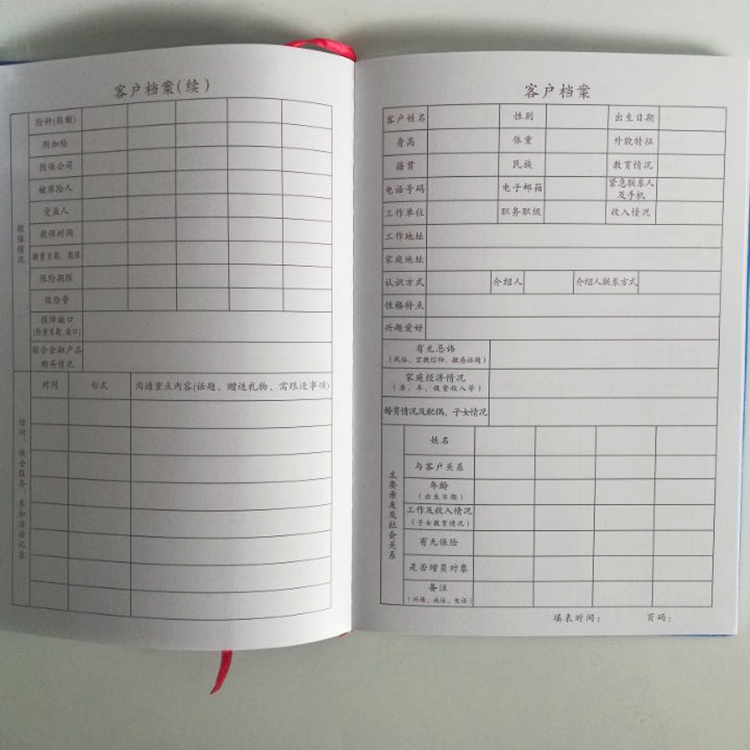 客户档案(续)
投保情况
险种(保额)
附加险
投保公司
被保险人
受益人
投保时间
缴费日期、期限
保险期限
保险费
保障缺口
(检查日期、缺口)
综合金融产品
购买情况
时间 形式 沟通重点内容(话题、赠送礼物、需跟进事项)
客户档案
客户姓名 性别 出生日期
身高 体重 外貌特征
籍贯 民族 教育情况
电话号码 电子邮箱 紧急联系人
及手机
工作单位 职务职级 收入情况
工作地址
家庭地址
认识方式 介绍人 介绍人联系方式
性格特点
兴趣爱好
有无忌讳
(风俗、宗教信仰、敏感话题)
家庭经济情况
(房、车、投资收入等)
婚育情况及配偶、子女情况
主要亲友及社会关系
姓名
与客户关系
年龄
(出生日期)
工作及收入情况
(子女教育情况)
有无保险
是否增员对象
备注
(兴趣、地址、电话)
填表时间: 页码: